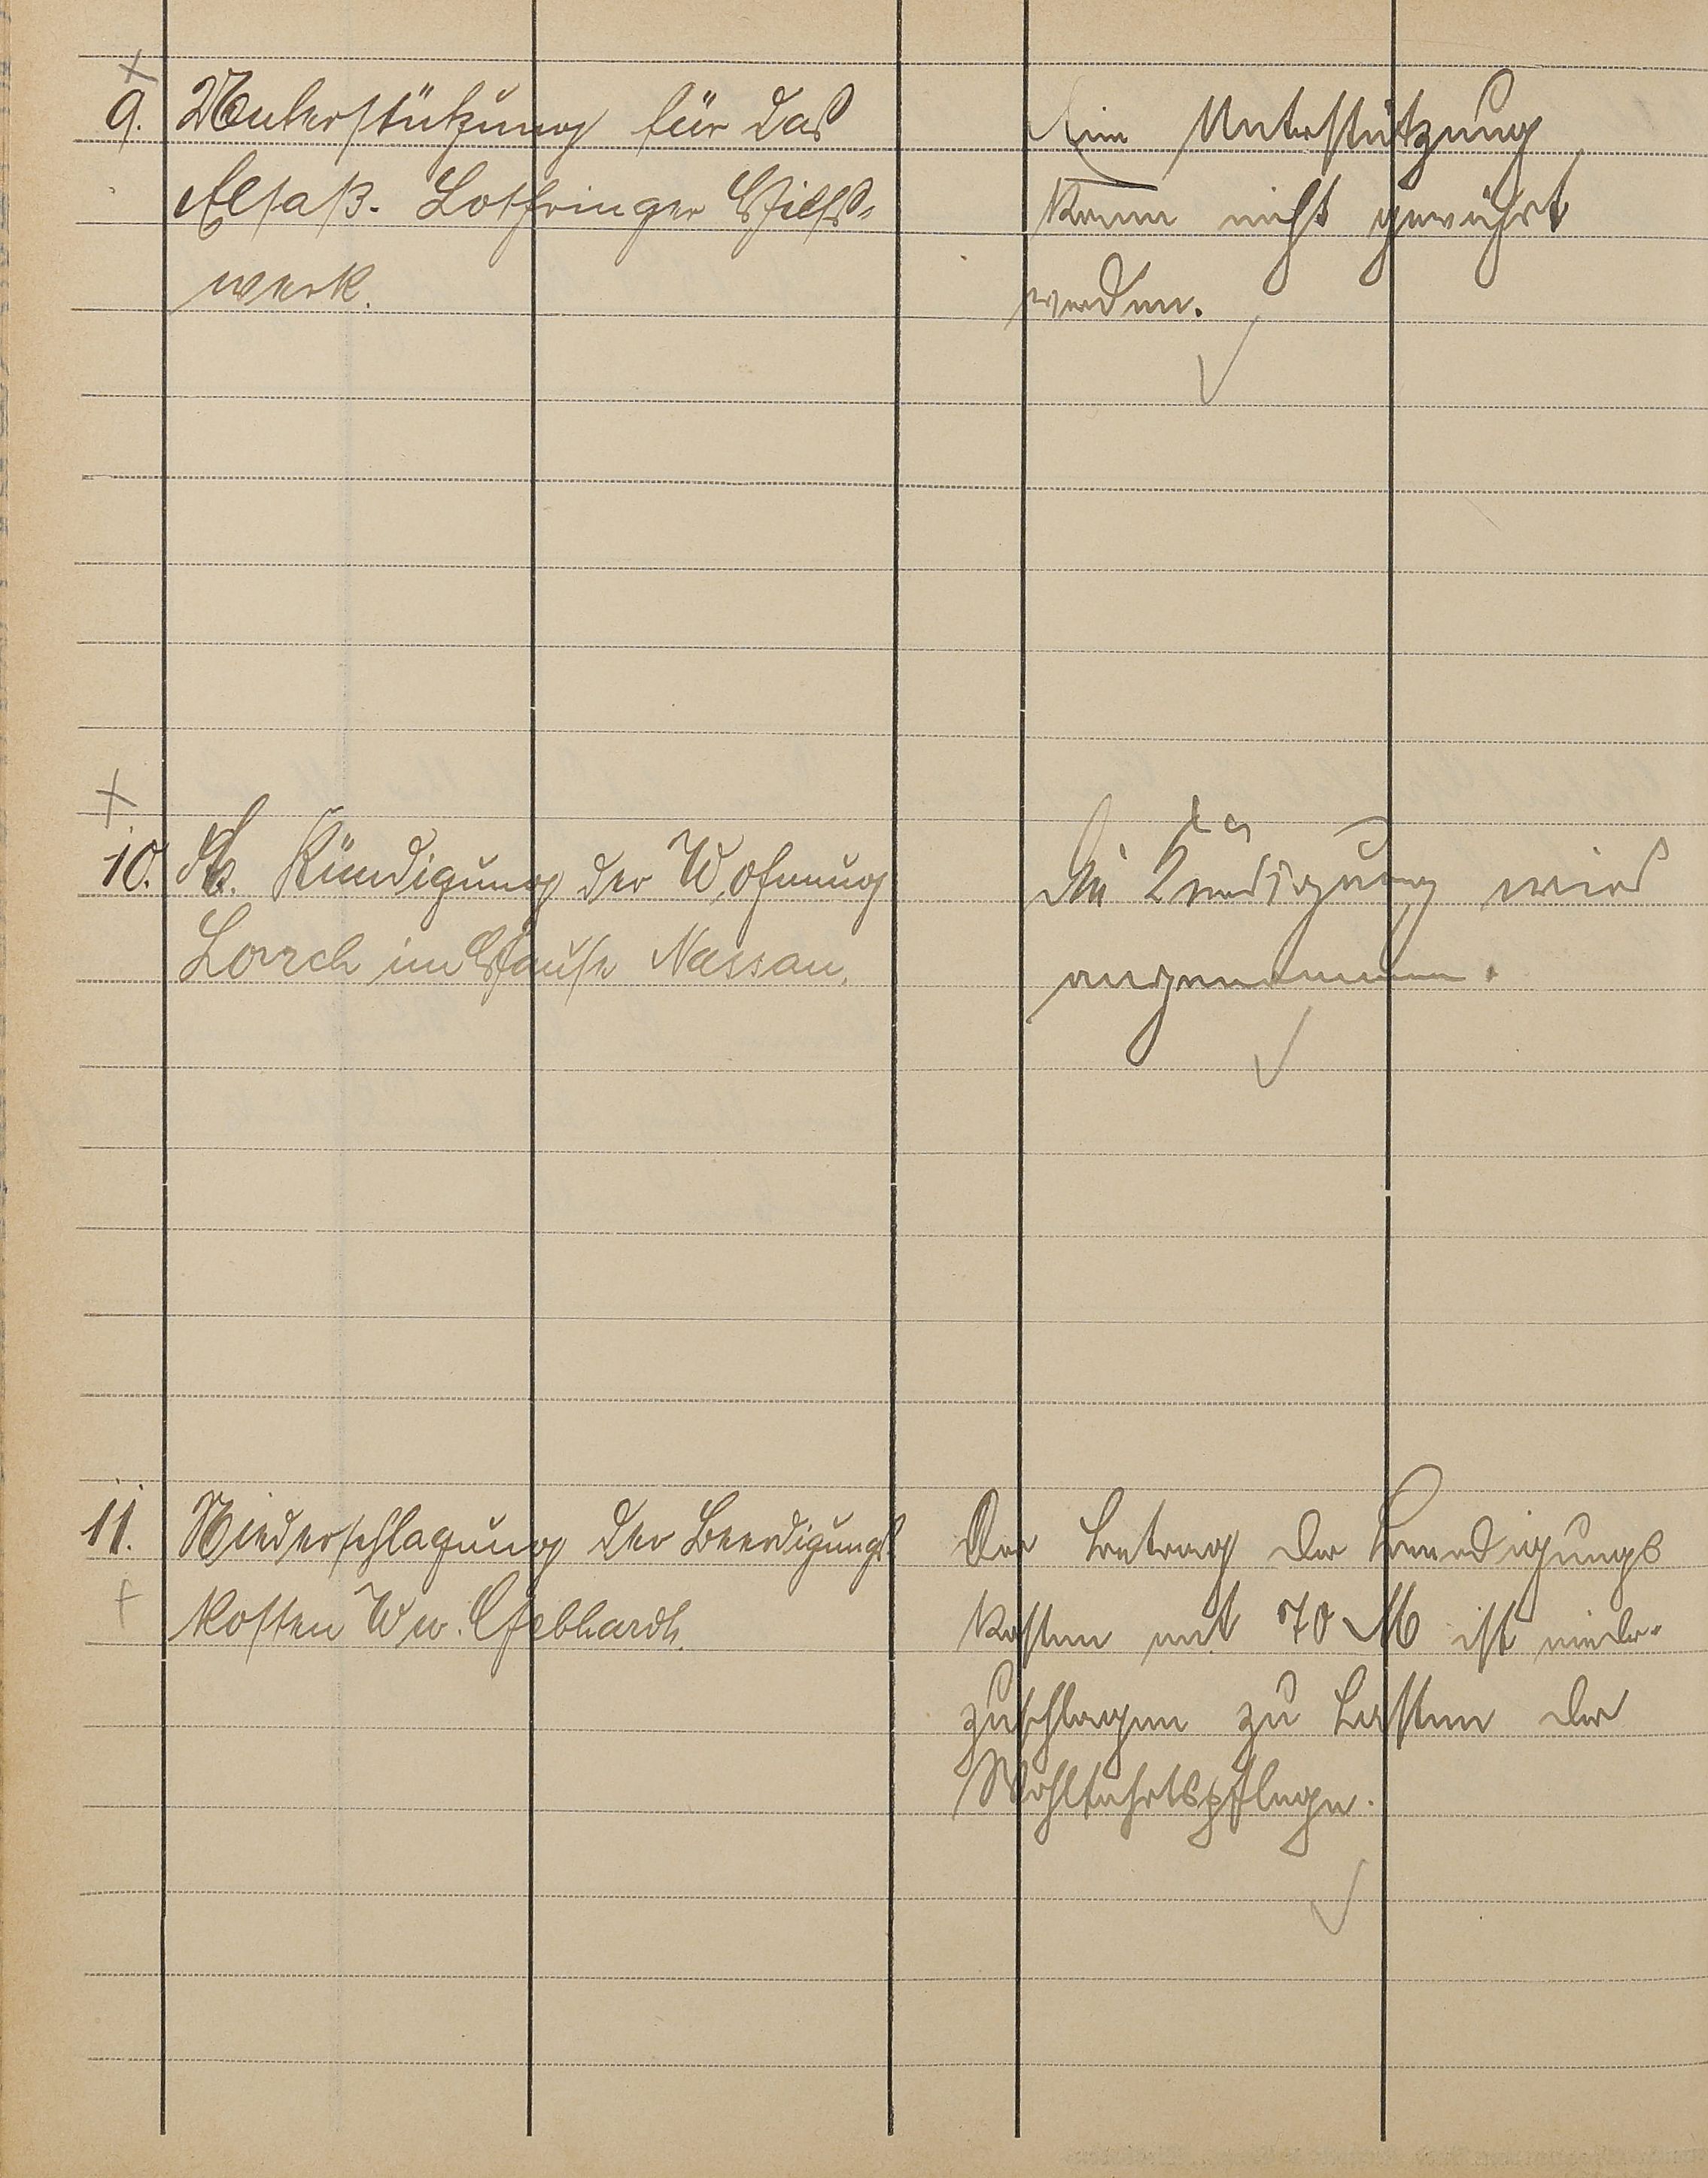 9. Unterstützung für das
Elsaß-Lothringer Hilfs-
werk.
Eine Unterstützung
kann nicht gewährt
werden.
10. Kündigung der Wohnung
Lorch im Hause Nassau.
Die Kündigung wird
angenommen.
11. Niederschlagung der Beerdigungs
kosten Ww. Gebhardt.
Der Betrag der Beerdigungs
kosten mit 70 M ist nieder-
zuschlagen zu Lasten der
Wohlfahrtspflege.